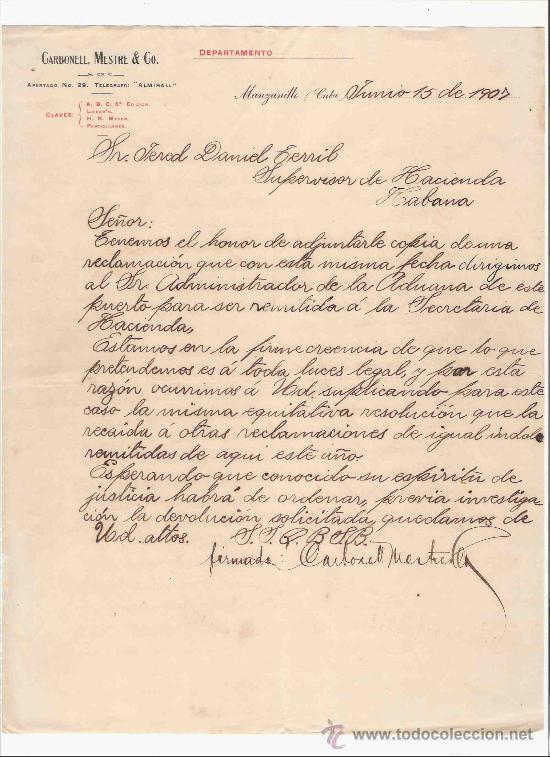 CARBONELL, MESTRE & CO.
S. EN C.
APARTADO NO. 29. TELEGRAFO: "ALMIRALL"
CLAVES:
A. B. C. 5ª EDICION.
LIEBER'S.
H. R. MEYER.
PARTICULARES.
DEPARTAMENTO
Manzanillo, Cuba, Junio 15 de 1907
Sr. Daniel
Supervisor de Hacienda
Habana
Señor:
Tenemos el honor de adjuntarle copia de una
reclamación que con esta misma fecha dirigimos
al Sr. Administrador de la Aduana de este
puerto para ser remitida á la Secretaria de
Hacienda,
Estamos en la firme creencia de que lo que
pretendemos es á toda luces legal, y por esta
razón ocurrimos á Ud. suplicando para este
caso la misma equitativa resolución que la
recaida á otras reclamaciones de igual indole
remitidas de aqui este año.
Esperando que conocido su espiritu de
justicia habra de ordenar, previa investiga
ción la devolución solicitada, quedamos de
Ud. attos. S. S. Q. B. S. B.
firmado: Carbonell Mestre & Co
www.todocoleccion.net